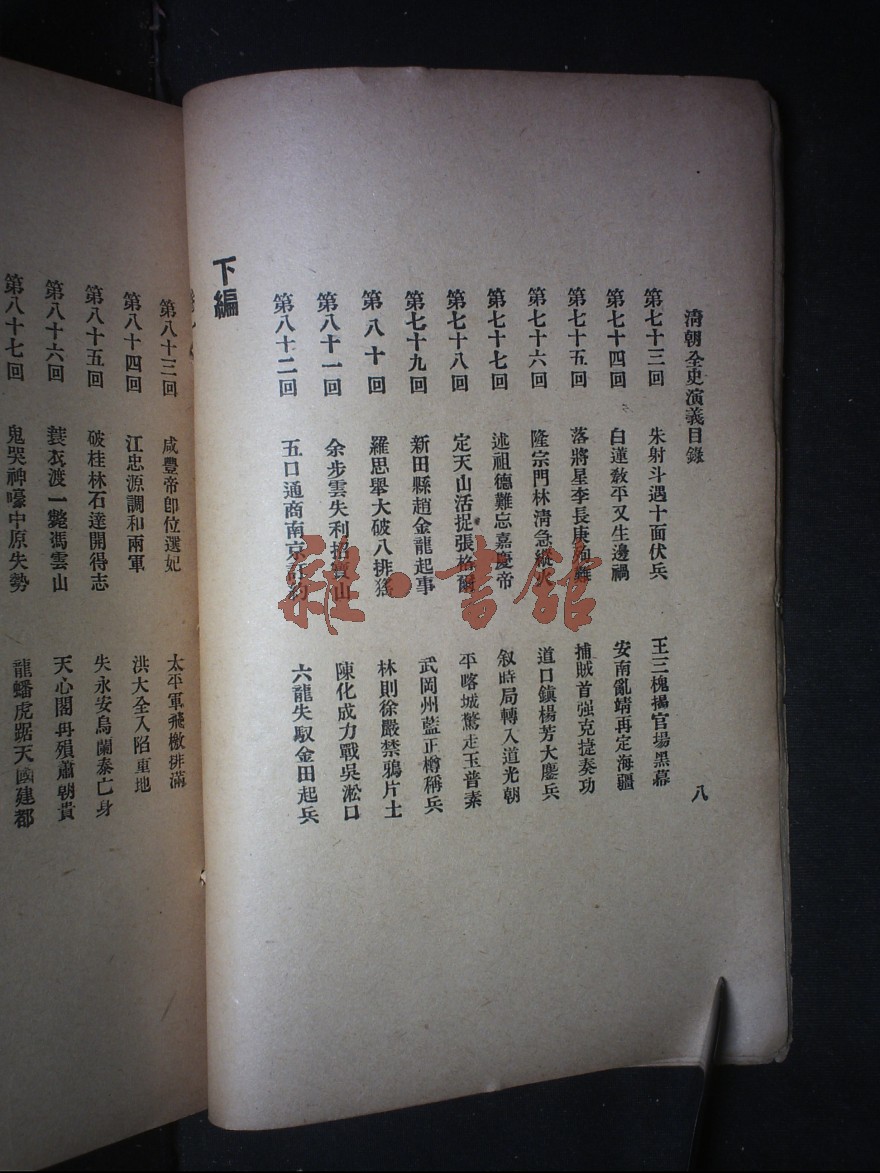 清朝全史演義目錄
八
第七十三回 朱射斗遇十面伏兵 王三槐揭官場黑幕
第七十四回 白蓮教平又生邊禍 安南亂靖再定海疆
第七十五回 落將星李長庚殉難 捕賊首强克捷奏功
第七十六回 隆宗門林清急縱火 道口鎮楊芳大鏖兵
第七十七回 述祖德難忘嘉慶帝 敘時局轉入道光朝
第七十八回 定天山活捉張格爾 平喀城驚走玉普素
第七十九回 新田縣趙金龍起事 武岡州藍正樽稱兵
第八十回 羅思舉大破八排猺 林則徐嚴禁鴉片土
第八十一回 余步雲失利招寶山 陳化成力戰吳淞口
第八十二回 五口通商南京訂約 六龍失馭金田起兵
下編
第八十三回 咸豐帝卽位選妃 太平軍飛檄排滿
第八十四回 江忠源調和兩軍 洪大全入陷重地
第八十五回 破桂林石達開得志 失永安烏蘭泰亡身
第八十六回 蓑衣渡一斃馮雲山 天心閣再殞蕭朝貴
第八十七回 鬼哭神嚎中原失勢 龍蟠虎踞天國建都
雜·書館